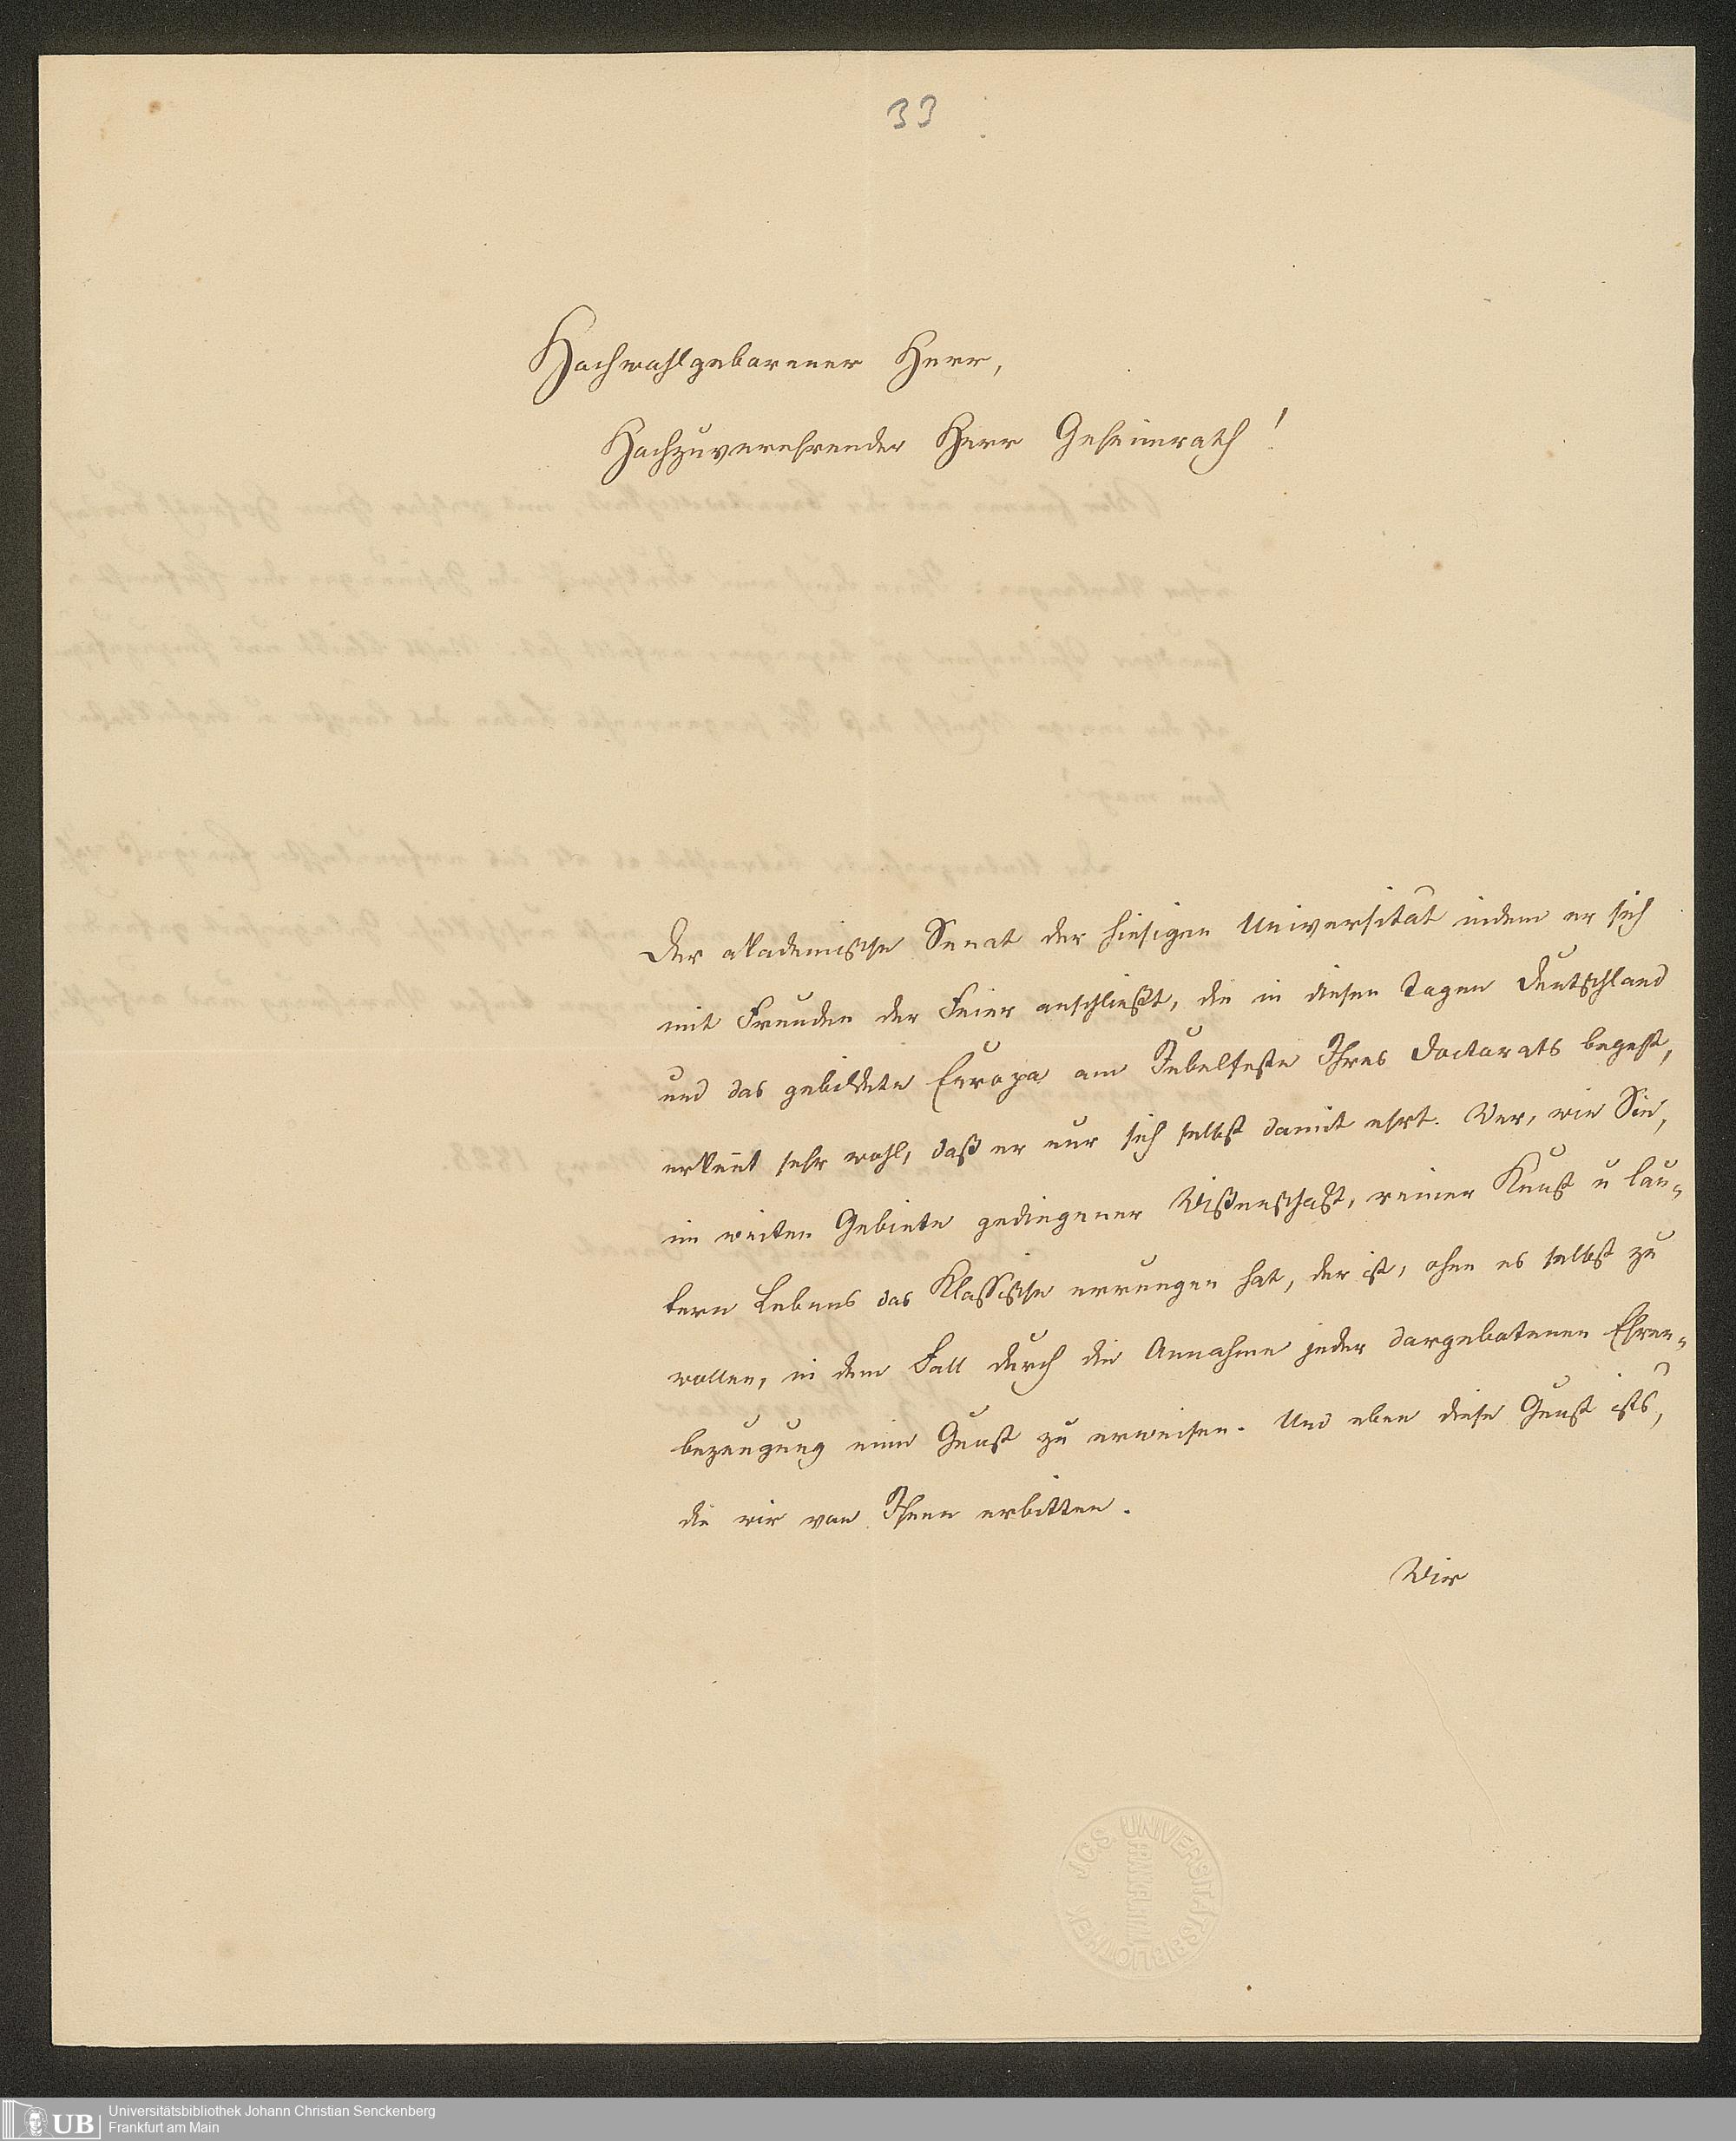 33
Hochwohlgeborener Herr,
Hochzuverehrender Herr Geheimrath!
Der akademische Senat der hiesigen Universität indem er sich
mit Freuden der Feier anschließt, die in diesen Tagen Deutschland
und das gebildete Europa am Jubelfeste Ihres Doctorats begeht,
erkennt sehr wohl, daß er nur sich selbst damit ehrt. Wer, wie Sie,
im weiten Gebiete gediegener Wißenschaft, reiner Kunst u lau-
tern Lebens das Klassische errungen hat, der ist, ohne es selbst zu
wollen, in dem Fall durch die Annahme jeder dargebotenen Ehren-
bezeugung eine Gunst zu erweisen. Und eben diese Gunst ists,
die wir von Ihnen erbitten.
Wir
J.C.S. UNIVERSITÄTSBIBLIOTHEK
FRANKF.
UB
Universitätsbibliothek Johann Christian Senckenberg
Frankfurt am Main